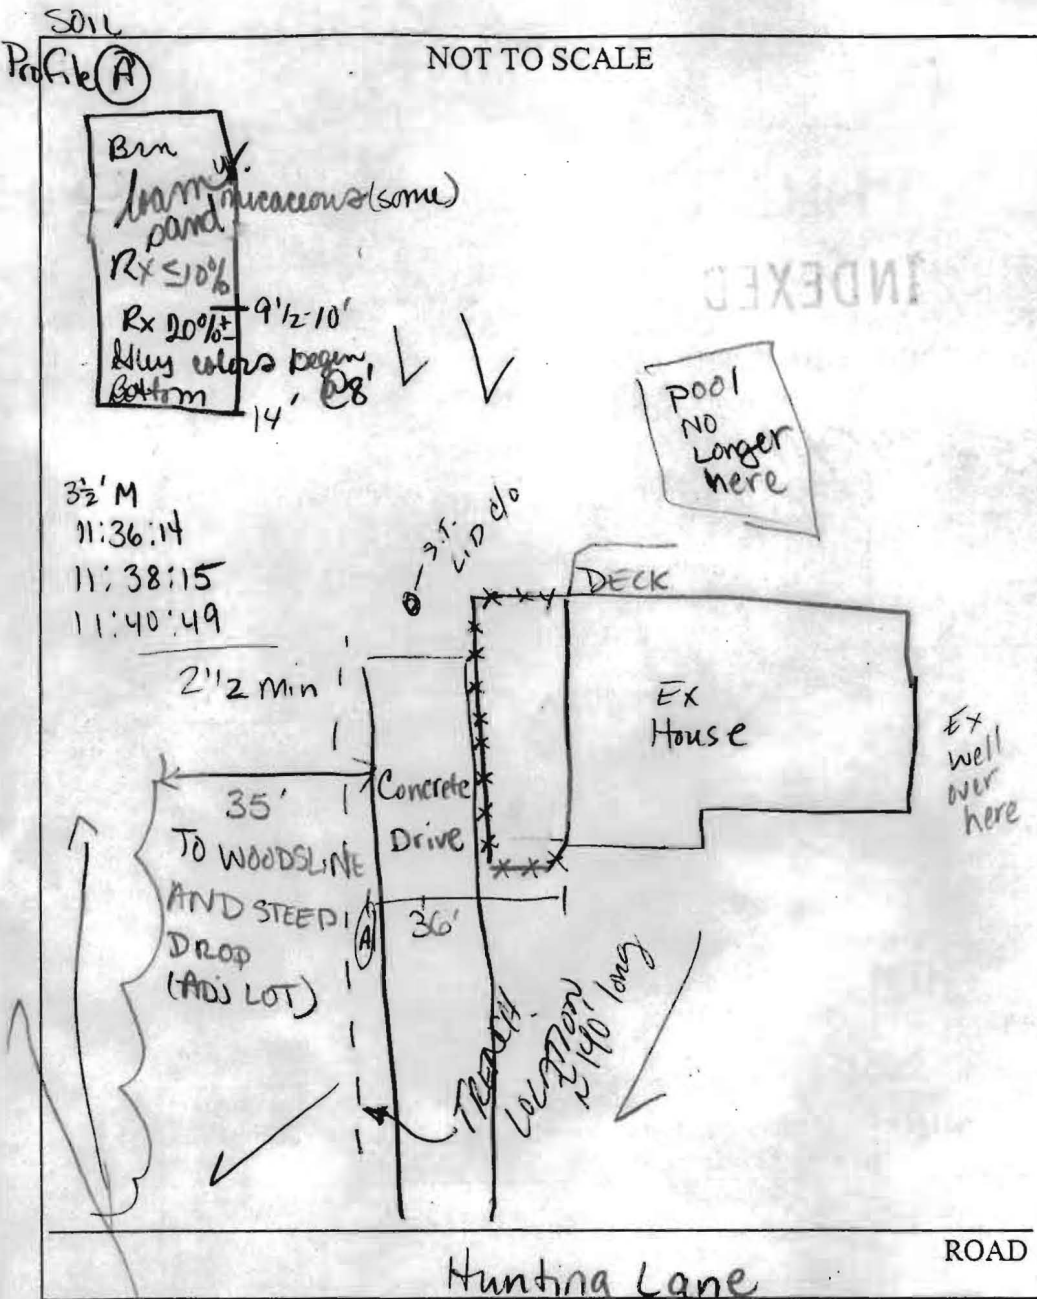 SOIL
Profile A
NOT TO SCALE
Brn
loamy
sand
micaceous (some)
Rx ≤10%
Rx 20%±
9 1/2-10'
colors begin
@8'
Bottom
14'
INDEXED
pool
NO
Longer
here
3½' M
11:36:14
11:38:15
11:40:49
2 1/2 min
S.T.
LID c/o
DECK
Ex
House
Ex
well
over
here
Concrete
Drive
35'
TO WOODSLINE
AND STEEP
DROP
(ADJ LOT)
A
36'
TRENCH
LOCATION
~ 140' long
ROAD
Hunting Lane